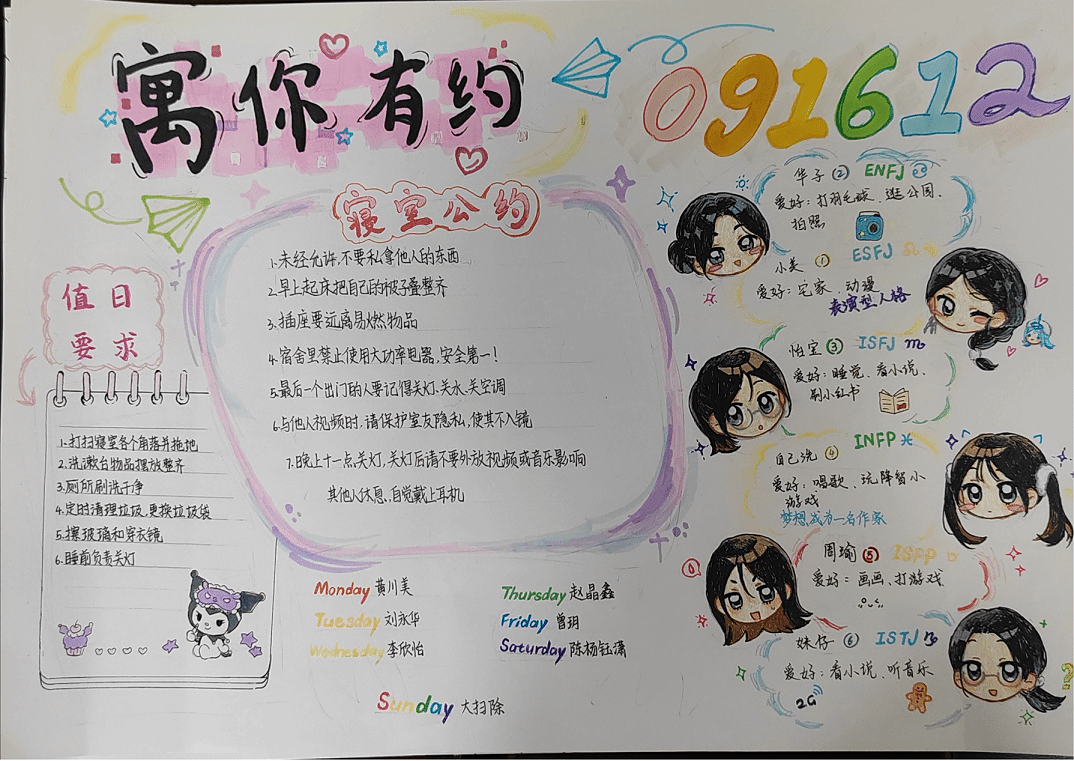 寓你有约
091612
寝室公约
1.未经允许,不要私拿他人的东西
2.早上起床把自己的被子叠整齐
3.插座要远离易燃物品
4.宿舍里禁止使用大功率电器,安全第一!
5.最后一个出门的人要记得关灯、关水、关空调
6.与他人视频时,请保护室友隐私,使其不入镜
7.晚上十一点关灯,关灯后请不要外放视频或音乐影响
其他人休息,自觉戴上耳机
值日
要求
1.打扫寝室各个角落并拖地
2.洗漱台物品摆放整齐
3.厕所刷洗干净
4.定时清理垃圾,更换垃圾袋
5.擦玻璃和穿衣镜
6.睡前负责关灯
Monday 黄川美
Tuesday 刘永华
Wednesday 李欣怡
Thursday 赵晶鑫
Friday 曾玥
Saturday 陈杨钰潇
Sunday 大扫除
华子② ENFJ ♋
爱好:打羽毛球、逛公园、
拍照
小美① ESFJ ♌
爱好:宅家、动漫
表演型人格
怡宝③ ISFJ ♏
爱好:睡觉、看小说、
刷小红书
自己洗④ INFP ♓
爱好:唱歌、玩降智小
游戏
梦想,成为一名作家
周瑜⑤ ISFP ♉
爱好:画画、打游戏
妹仔⑥ ISTJ ♑
爱好:看小说、听音乐
2G